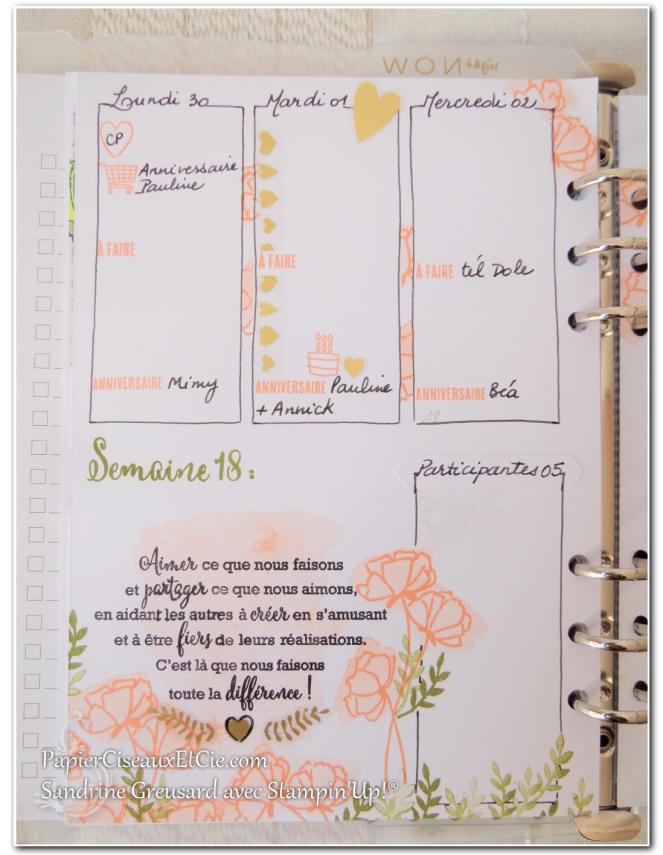 WON
right
Loundi 30
CP
Anniversaire
Pauline
À FAIRE
ANNIVERSAIRE Mimy
Mardi 01
À FAIRE
ANNIVERSAIRE Pauline
+ Annick
Mercredi 02
À FAIRE tél Dole
ANNIVERSAIRE Béa
18
Semaine 18 :
Participantes 05
Aimer ce que nous faisons
et partager ce que nous aimons,
en aidant les autres à créer en s'amusant
et à être fiers de leurs réalisations.
C'est là que nous faisons
toute la différence !
PapierCiseauxEtCie.com
Sandrine Greusard avec Stampin'Up!®